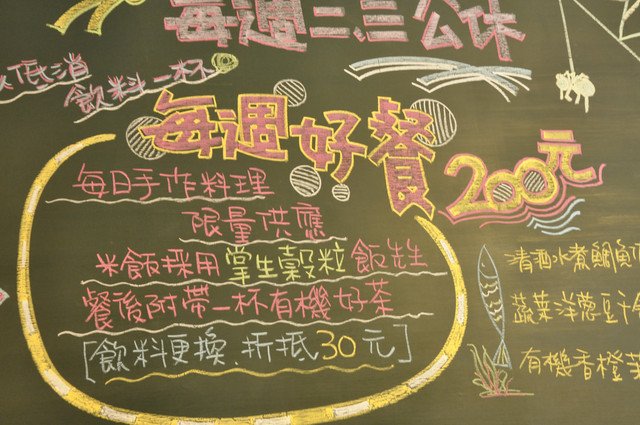 每週二.三公休
低消
飲料一杯
每週好餐200元
每日手作料理
限量供應
米飯採用掌生穀粒飯
餐後附帶一杯有機好茶
[飲料更換.折抵30元]
清酒水煮鯛魚
蔬菜洋蔥豆干
有機香橙